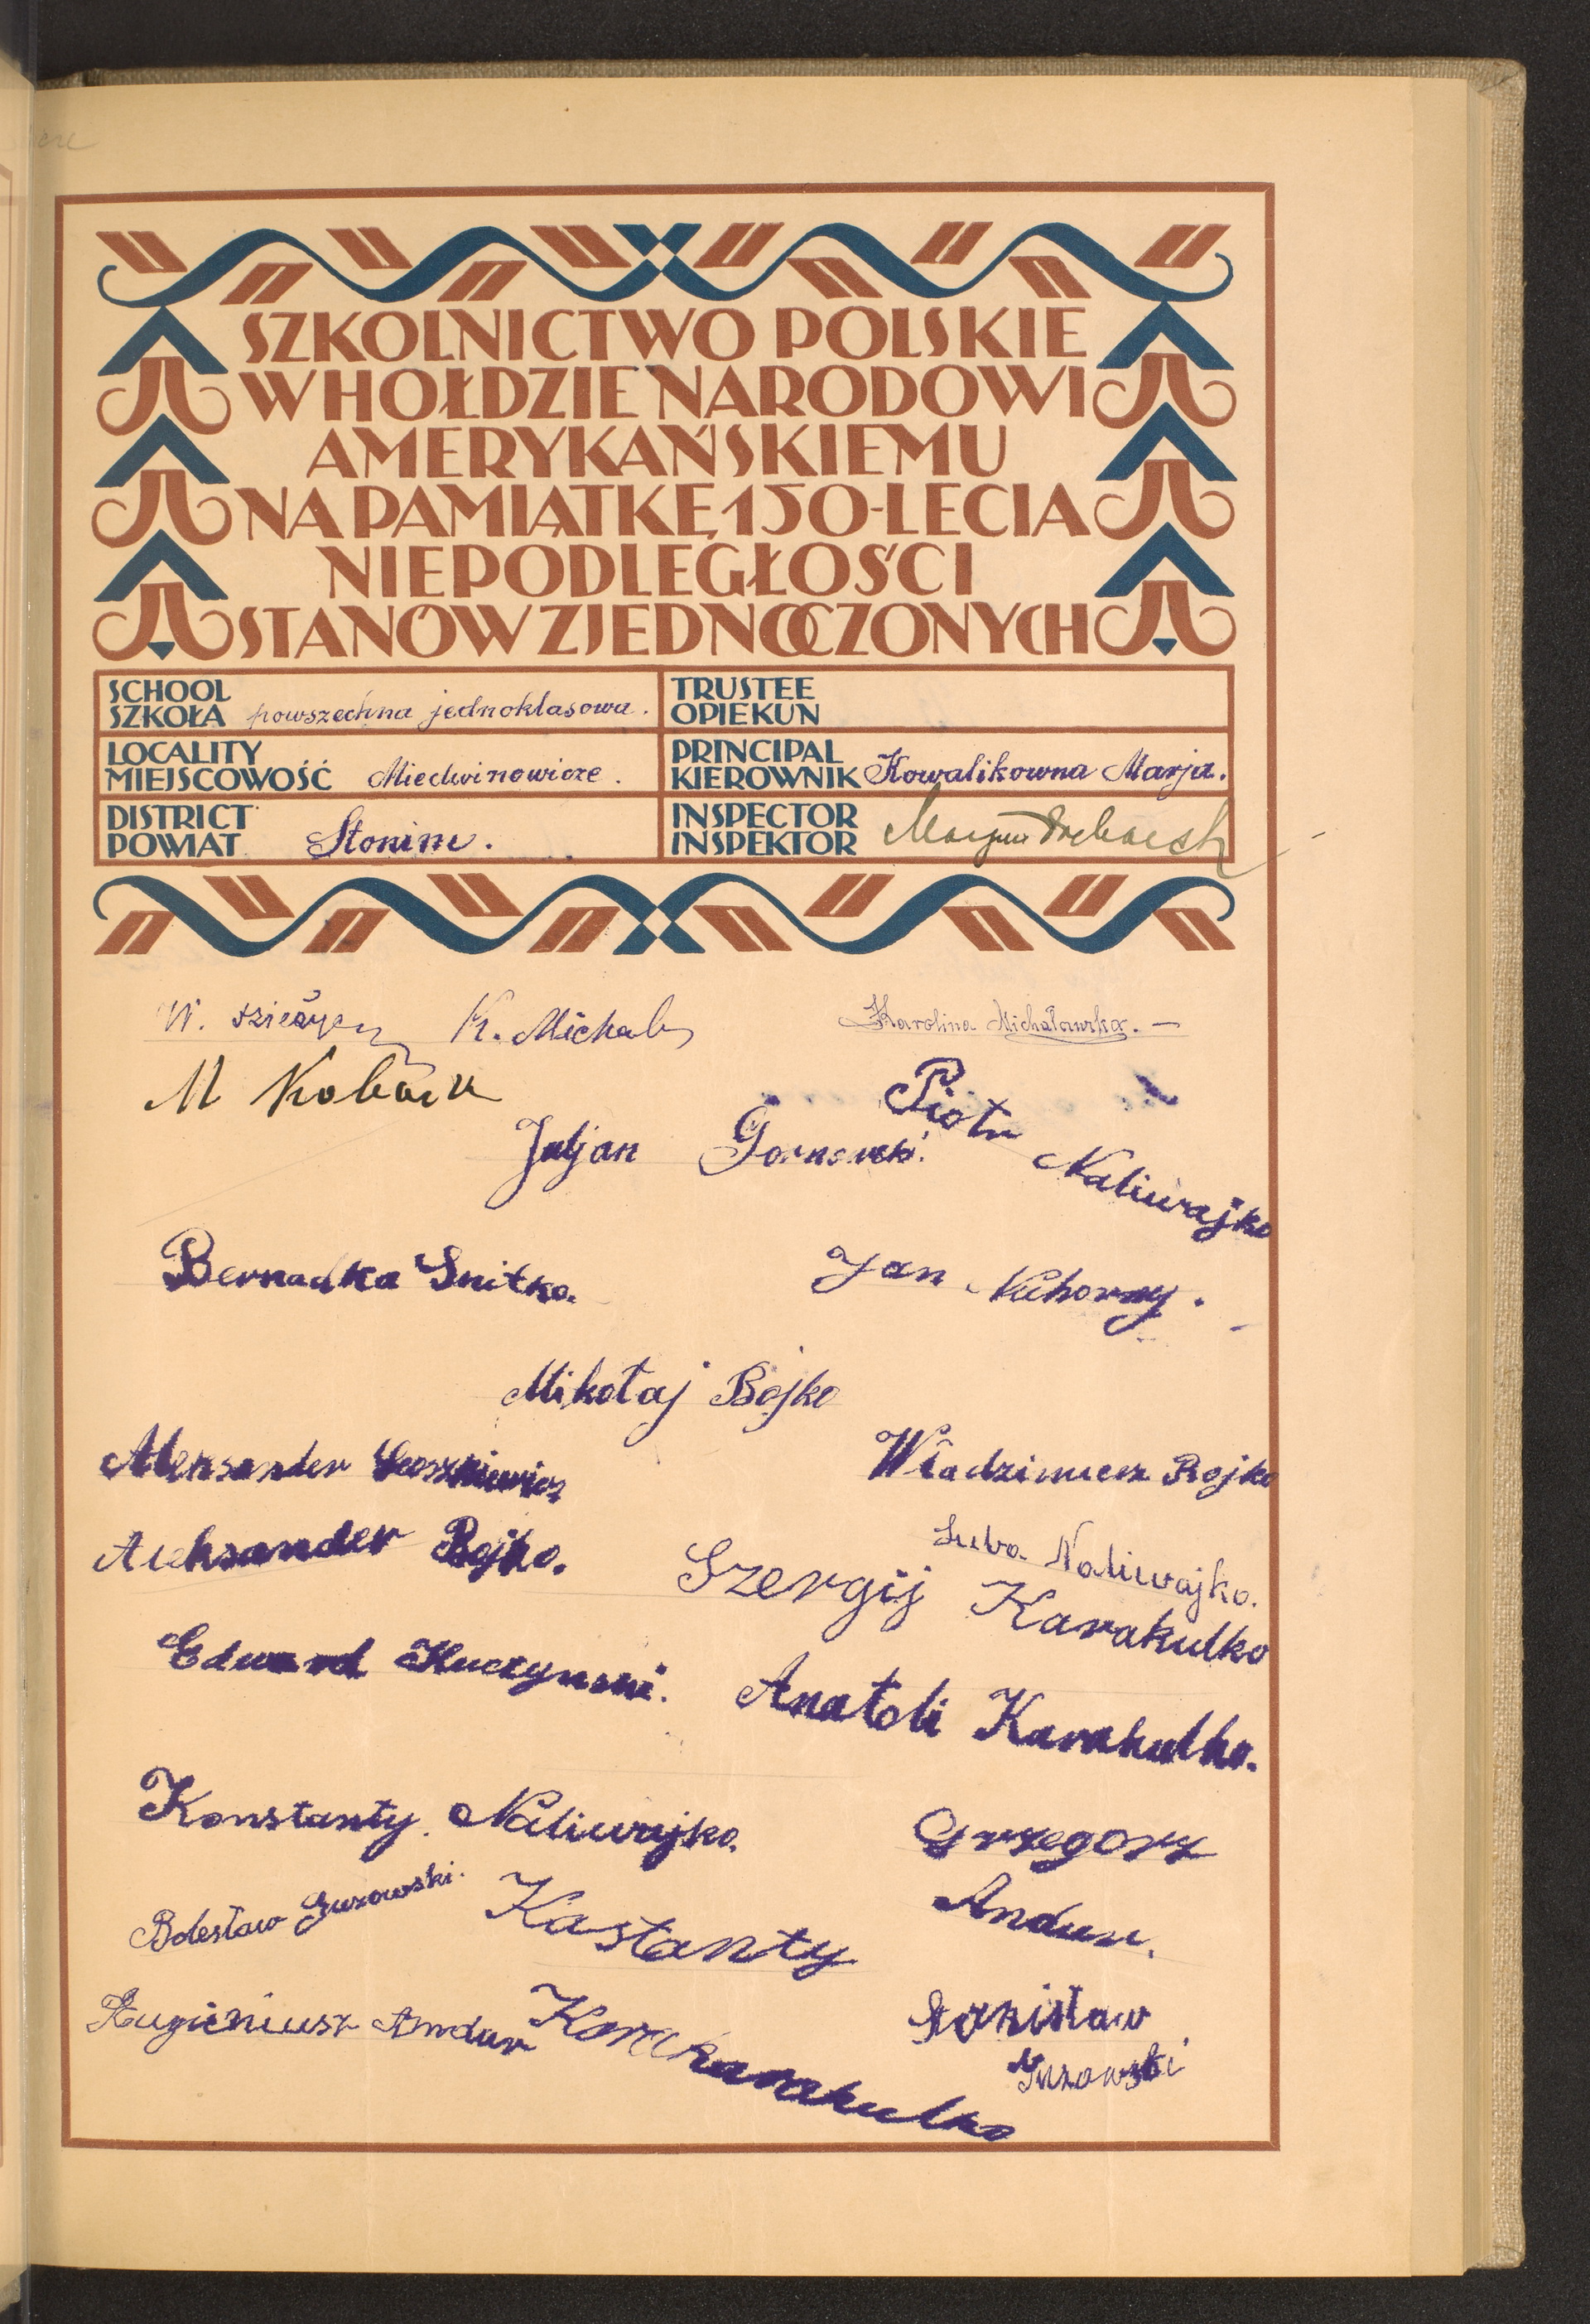 SZKOLNICTWO POLSKIE
W HOŁDZIE NARODOWI
AMERYKAŃSKIEMU
NA PAMIĄTKĘ 150-LECIA
NIEPODLEGŁOŚCI
STANÓW ZJEDNOCZONYCH
SCHOOL
SZKOŁA powszechna jednoklasowa.
TRUSTEE
OPIEKUN
LOCALITY
MIEJSCOWOŚĆ Miedwinowicze.
PRINCIPAL
KIEROWNIK Kowalikowna Marja.
DISTRICT
POWIAT Słonim.
INSPECTOR
INSPEKTOR
W.
K. Michal
Karolina Michałowska. —
M
Piotr Naliwajko
Juljan Gornowski.
Bernadka Snitko.
Jan Nahorny.
Mikołaj Bojko
Aleksander
Władzimierz Bojko
Aleksander Bojko.
Luba Naliwajko.
Szergij Karakulko
Edward Kuczynski.
Anatoli Karakulko.
Konstanty Naliwajko.
Grzegorz
Andur.
Bolesław Gurowski.
Kastanty
Eugieniusz Andur
Stanisław